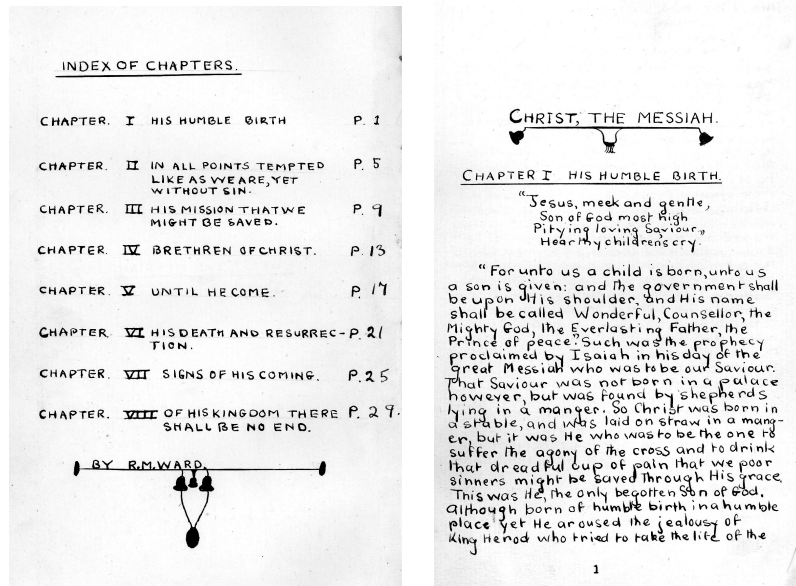 INDEX OF CHAPTERS.
CHAPTER. I HIS HUMBLE BIRTH P. 1
CHAPTER. II IN ALL POINTS TEMPTED P. 5
LIKE AS WE ARE, YET
WITHOUT SIN.
CHAPTER. III HIS MISSION THAT WE P. 9
MIGHT BE SAVED.
CHAPTER. IV BRETHREN OF CHRIST. P. 13
CHAPTER. V UNTIL HE COME. P. 17
CHAPTER. VI HIS DEATH AND RESURREC- P. 21
TION.
CHAPTER. VII SIGNS OF HIS COMING. P. 25
CHAPTER. VIII OF HIS KINGDOM THERE P. 29.
SHALL BE NO END.
BY R.M. WARD.
CHRIST, THE MESSIAH.
CHAPTER I HIS HUMBLE BIRTH.
"Jesus, meek and gentle,
Son of God most high
Pitying loving Saviour,,
Hear thy children's cry.
"For unto us a child is born, unto us
a son is given: and the government shall
be upon His shoulder, and His name
shall be called Wonderful, Counsellor, the
Mighty God, the Everlasting Father, the
Prince of peace." Such was the prophecy
proclaimed by Isaiah in his day of the
great Messiah who was to be our Saviour.
That Saviour was not born in a palace
however, but was found by shepherds
lying in a manger. So Christ was born in
a stable, and was laid on straw in a mang-
er, but it was He who was to be the one to
suffer the agony of the cross and to drink
that dreadful cup of pain that we poor
sinners might be saved through His grace.
This was He, the only begotten Son of God.
Although born of humble birth in a humble
place yet He aroused the jealousy of
King Herod who tried to take the life of the
1